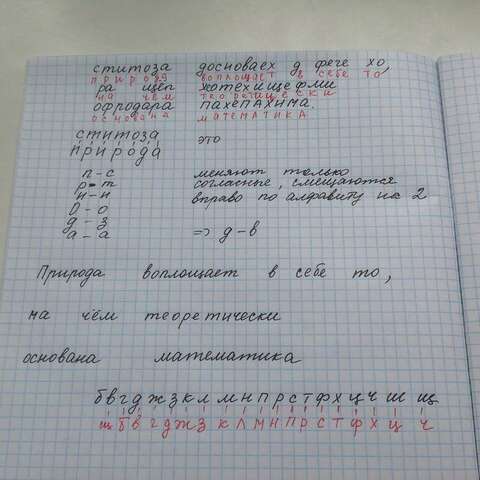 ститоза досноваех д феге хо,
природа воплощает в себе то
ра щеп хотехищефми
на чём теоретически
офродара пахепахима.
основана математика
ститоза это
природа
п-с меняют только
р-т согласные, смещаются
и-и вправо по алфавиту на 2
о-о
д-з
а-а => д-в
Природа воплощает в себе то,
на чём теоретически
основана математика
бвгджзклмнпрстфхцчшщ
щбвгджзклмнпрстфхцч